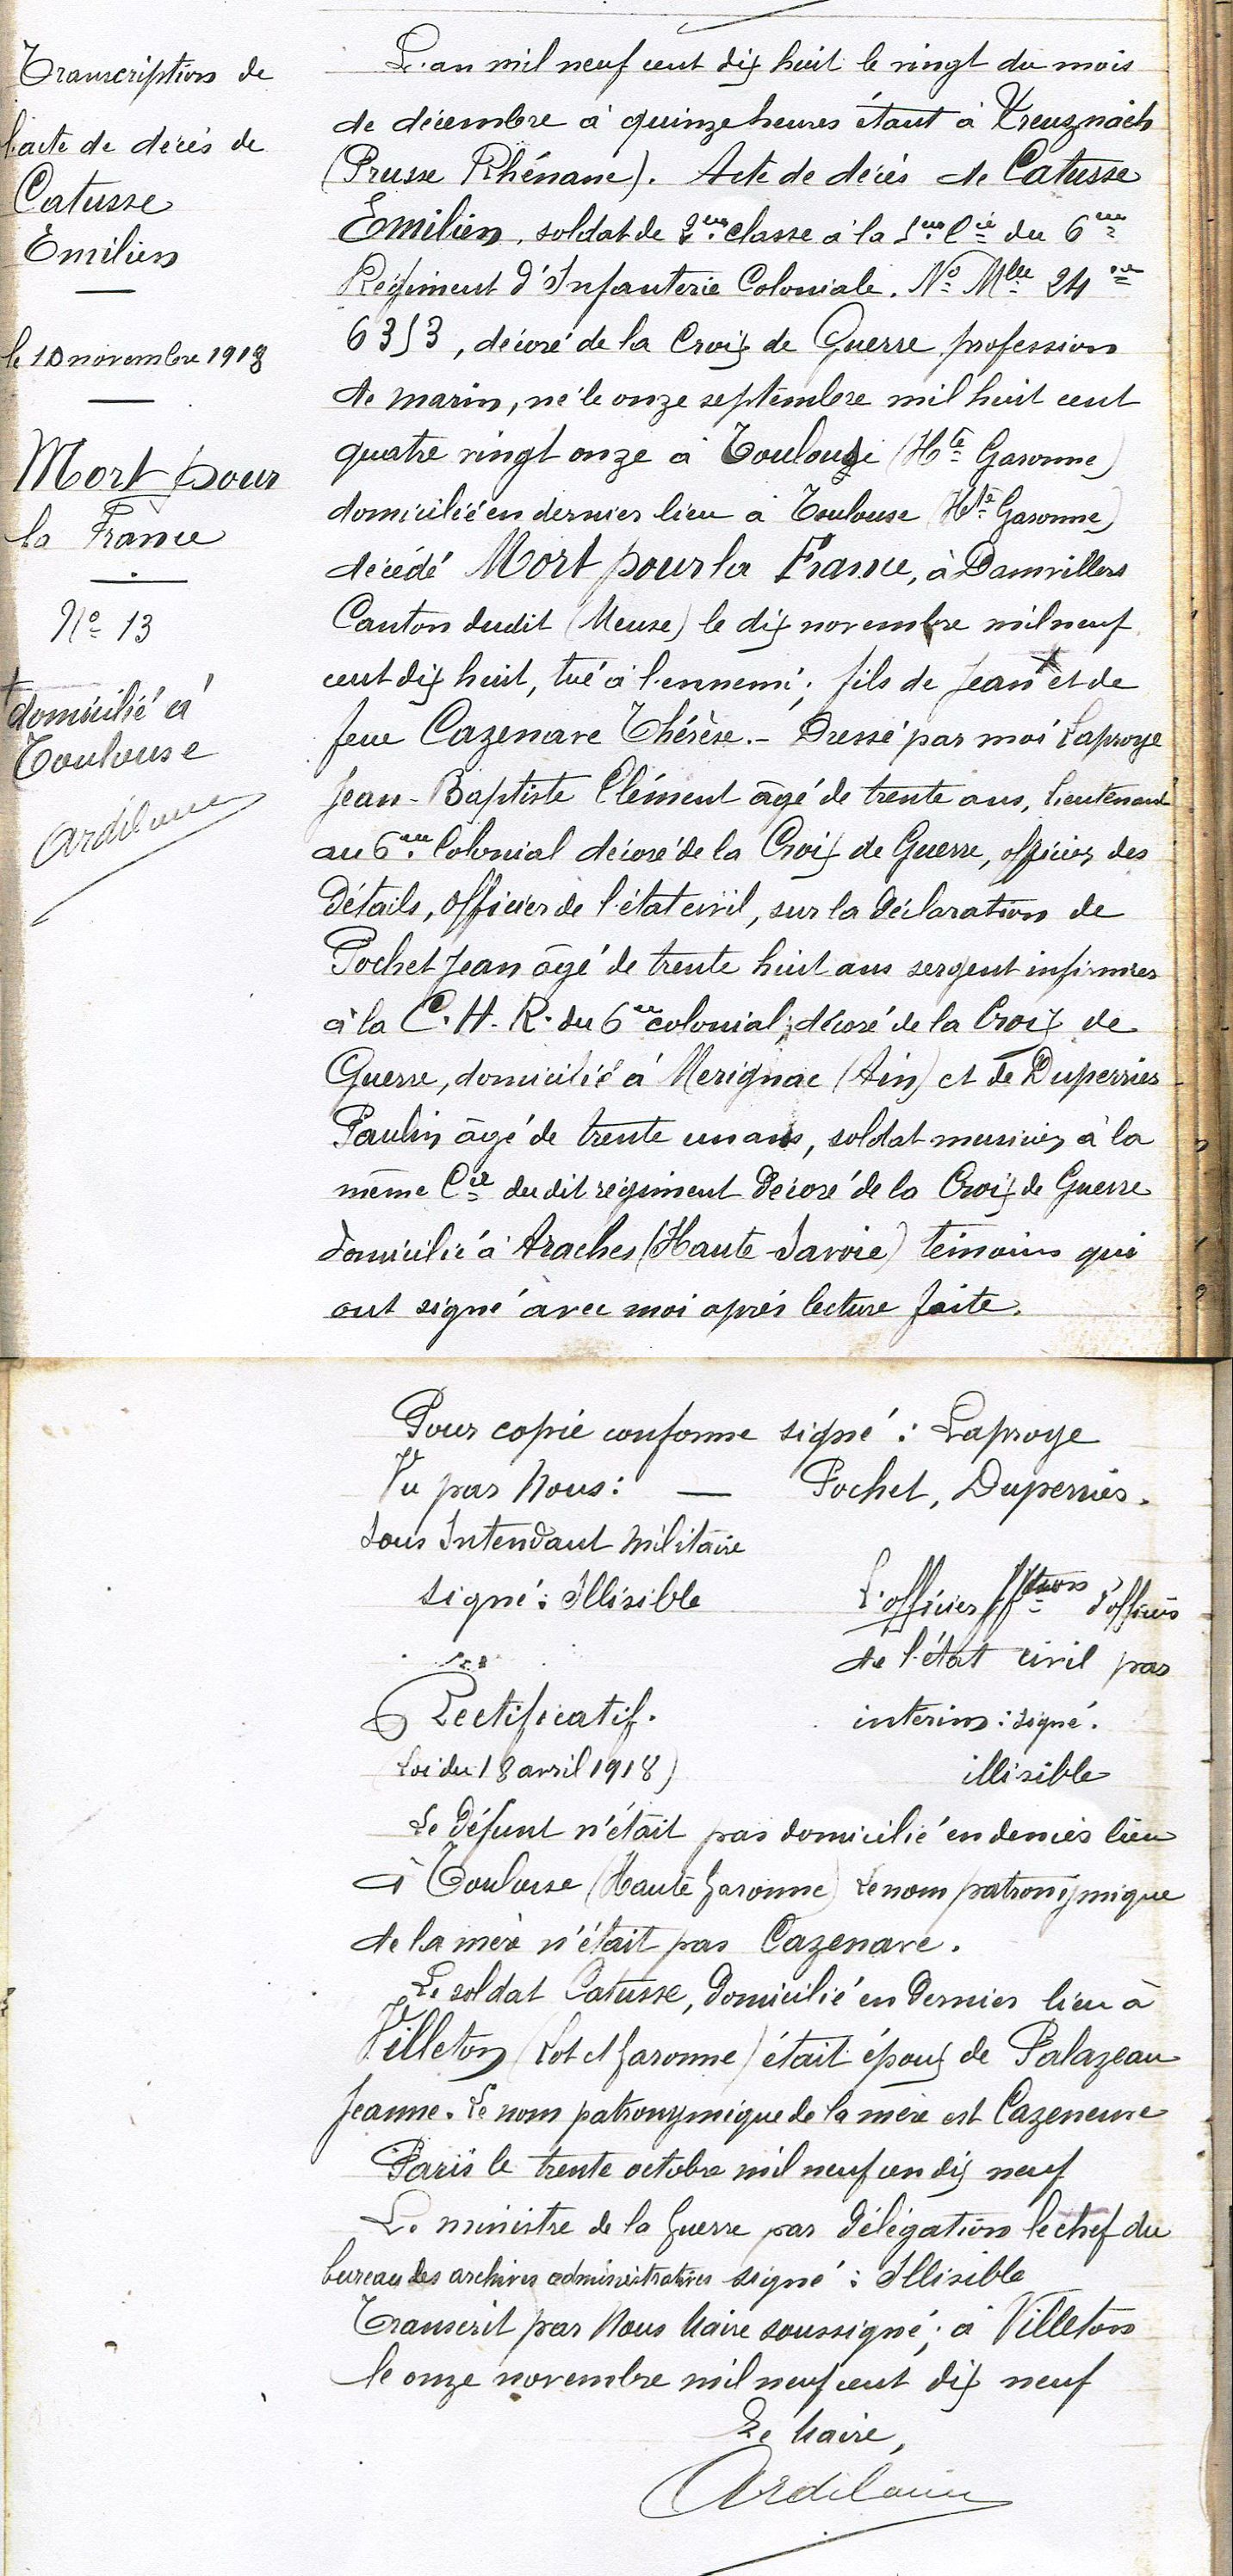 Transcription de
l'acte de décès de
Catusse
Emilien
le 10 novembre 1918
Mort pour
la France
No 13
+
domicilié à
Toulouse
Ardilouin
L'an mil neuf cent dix huit le vingt du mois
de décembre à quinze heures étant à Kreuznach
(Prusse Rhénane). Acte de décès de Catusse
Emilien, soldat de 2me classe à la 1ere Cie du 6me
Régiment d'Infanterie Coloniale. No Mle 24
6353, décoré de la Croix de Guerre, profession
de marin, né le onze septembre mil huit cent
quatre vingt onze à Toulouse (Hte Garonne)
domicilié en dernier lieu à Toulouse (Hte Garonne)
décédé Mort pour la France, à Damvillers
Canton dudit (Meuse) le dix novembre mil neuf
cent dix huit, tué à l'ennemi; fils de Jean + et de
feue Cazenave Thérèse. - Dressé par moi Laproye
Jean-Baptiste Clément âgé de trente ans, lieutenant
au 6me Colonial décoré de la Croix de Guerre, officier des
Détails, officier de l'état civil, sur la déclaration de
Pochet Jean âgé de trente huit ans sergent infirmier
à la C. H. R. du 6me colonial, décoré de la Croix de
Guerre, domicilié à Merignac (Ain) et de Duperrier
Paulin âgé de trente un ans, soldat musicien à la
même Cie dudit régiment Décoré de la Croix de Guerre
domicilié à Araches (Haute Savoie) témoins qui
ont signé avec moi après lecture faite.
Pour copie conforme signé : Laproye
Vu par Nous : — Pochet, Duperrier.
Sous Intendant Militaire
signé : Illisible
L'officier ff tions d'officier
de l'état civil par
interim : signé.
illisible
Rectificatif.
Loi du 18 avril 1918)
Le Défunt n'était pas domicilié en dernier lieu
à Toulouse (Haute Garonne) Le nom patronymique
de la mère n'était pas Cazenave.
Le soldat Catusse, Domicilié en Dernier lieu à
Villeton (Lot et Garonne) était époux de Palazeau
Jeanne. Le nom patronymique de la mère est Cazeneuve
Paris le trente octobre mil neuf cen dix neuf
Le ministre de la Guerre par Délégation le chef du
bureau des archives administratives signé : Illisible
Transcrit par Nous Maire soussigné; à Villeton
le onze novembre mil neuf cent dix neuf
Le Maire,
Ardilouin